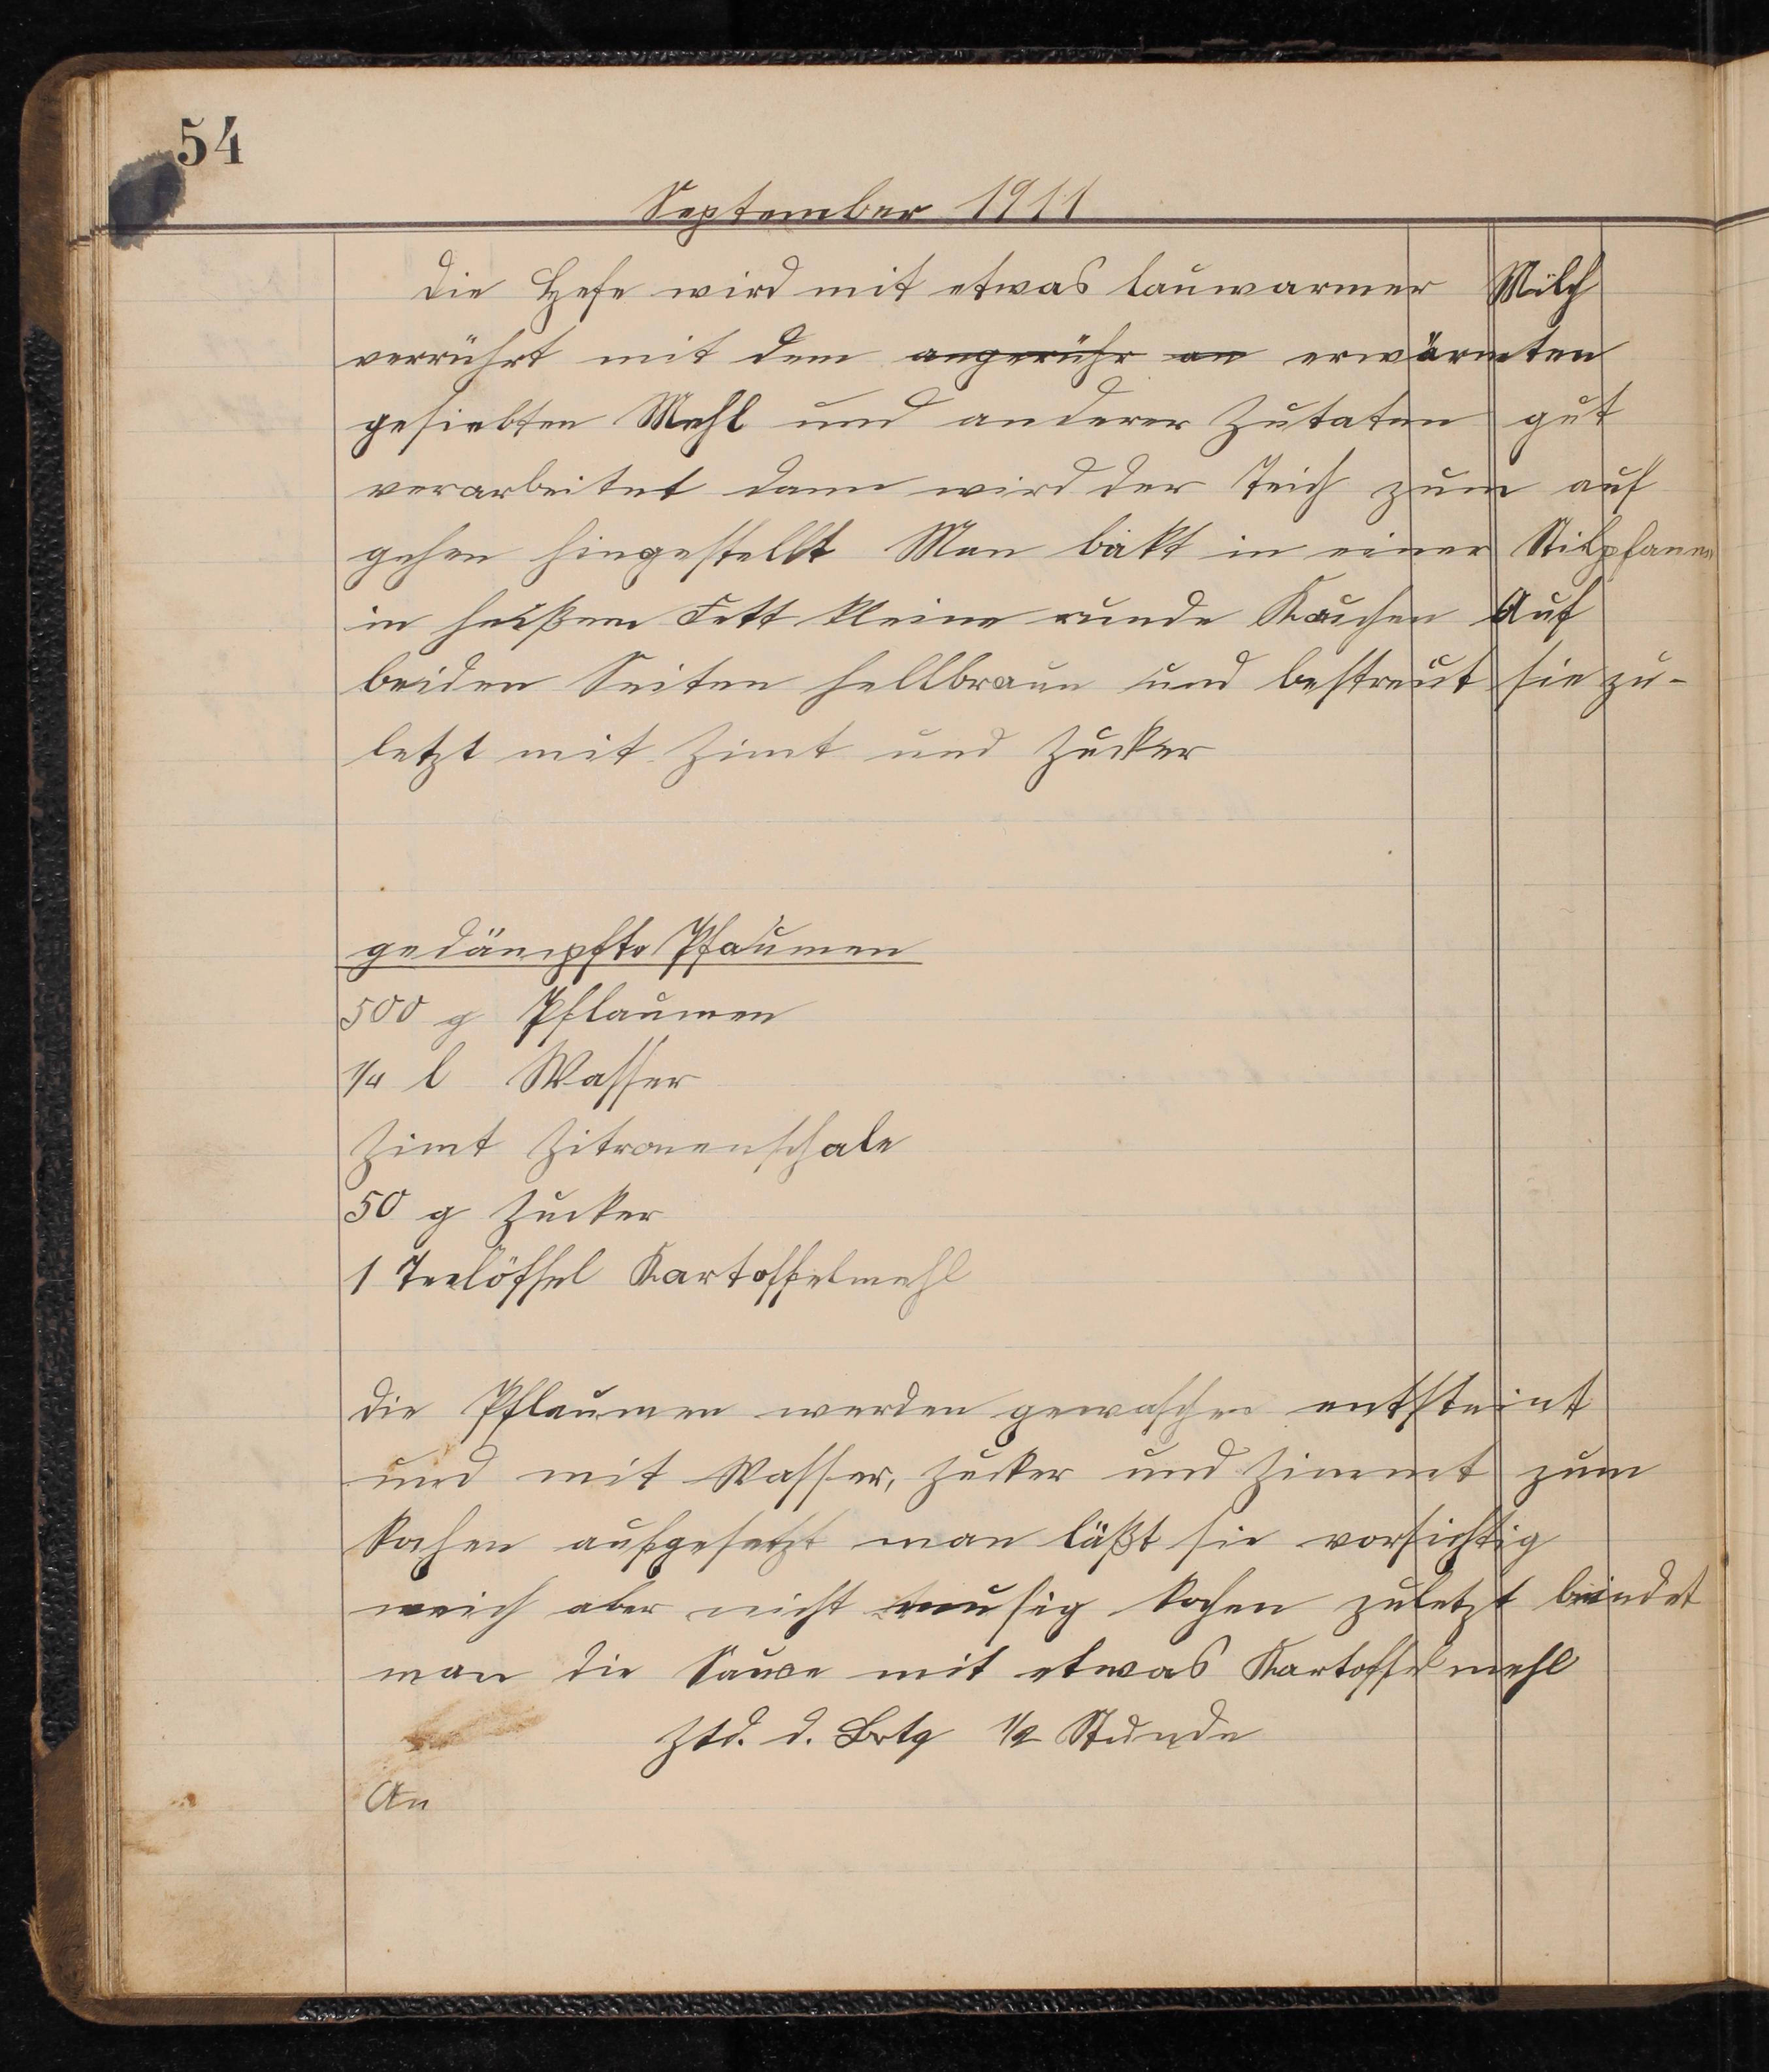 54
September 1911
Die Hefe wird mit etwas lauwarmer Milch
verrührt mit dem angerühr an erwärmten
gesiebten Mehl und anderer Zutaten gut
verarbeitet dann wird der Teich zum auf
gehen hingestellt Man bäkt in einer Stilpfanne
in heißem Fett kleine runde Kuchen Auf
beiden Seiten hellbraun und bestreut sie zu-
letzt mit Zimt und Zucker
gedämpfte Pfaumen
500 g Pflaumen
1/4 l Wasser
Zimt Zitronenschale
50 g Zucker
1 Teelöffel Kartoffelmehl
Die Pflaumen werden gewaschen entsteint
und mit Wasser, Zucker und Zimmt zum
kochen aufgesetzt man läßt sie vorsichtig
weich aber nicht musig kochen zuletzt bindet
man die Sauce mit etwas Kartoffelmehl
Ztd. d. Brtg 1/2 Stunde
An